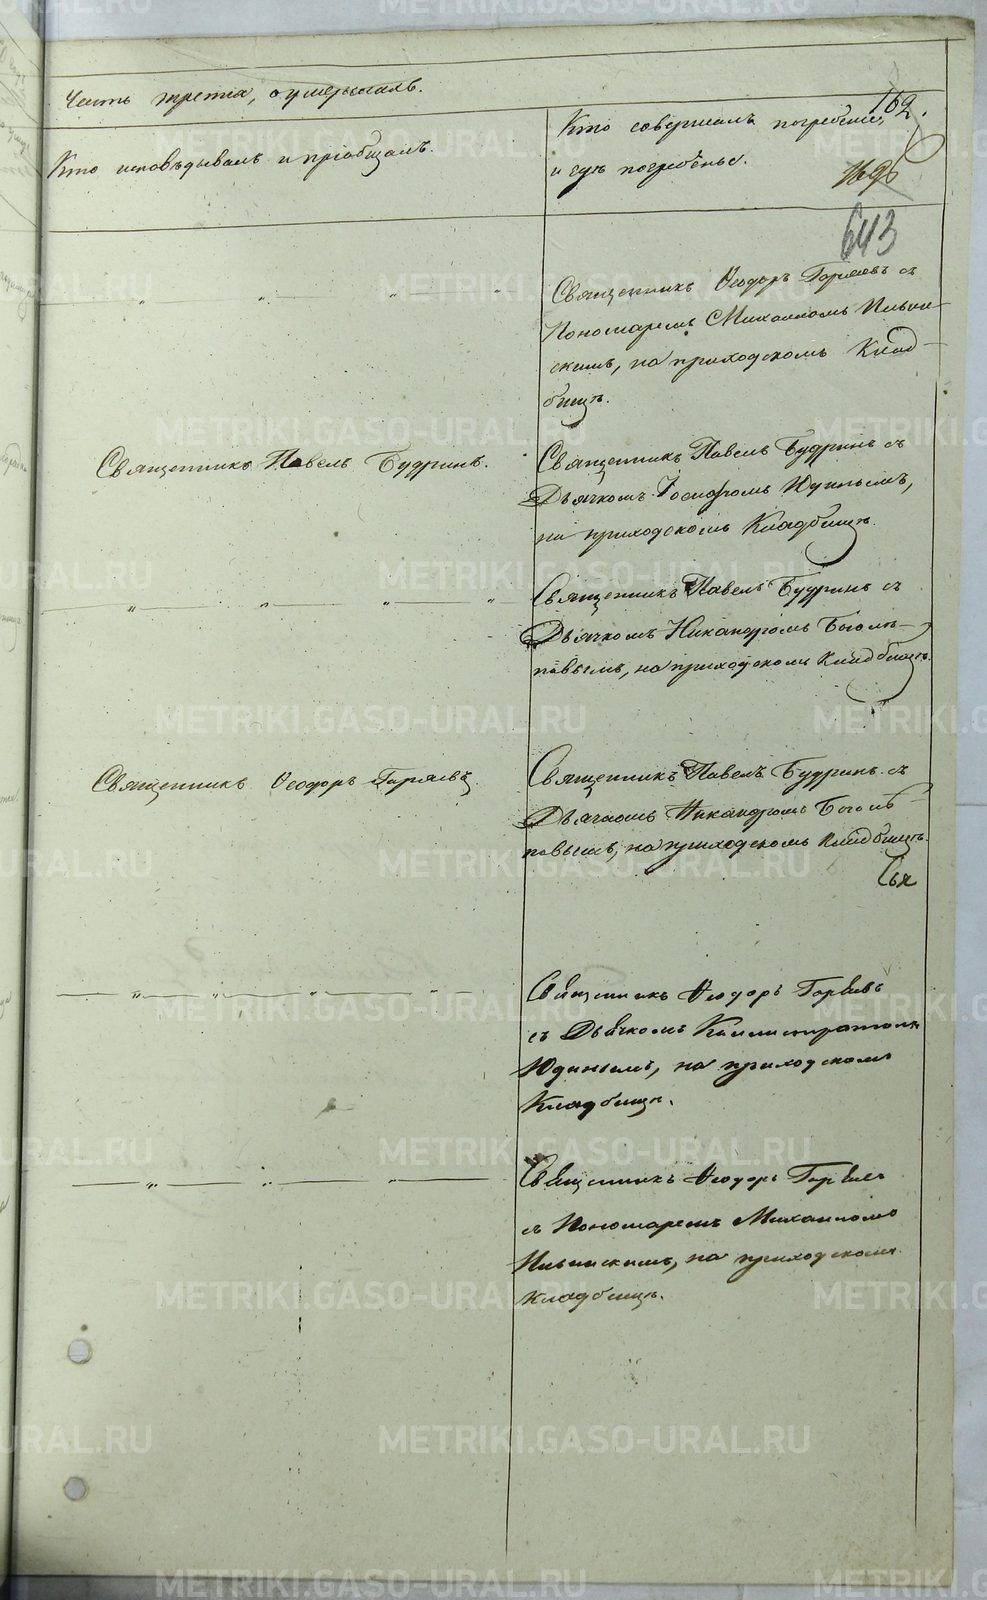 Часть третья, о умершихъ.
162.
Кто исповѣдывалъ и пріобщалъ.
Кто совершалъ погребеніе,
и гдѣ погребены.
643
Священникъ Ѳеодоръ Горяевъ съ
Пономаремъ Михаиломъ Ильин-
скимъ, на приходскомъ Клад-
бищѣ.
Священникъ Павелъ Будринъ.
Священникъ Павелъ Будринъ съ
Дьячкомъ Іосифомъ
на приходскомъ Кладбищѣ.
Священникъ Павелъ Будринъ съ
Дьячкомъ Никандромъ Боголѣ-
повымъ, на приходскомъ Кладбищѣ.
Священникъ Ѳеодоръ Горяевъ.
Священникъ Павелъ Будринъ съ
Дьячкомъ Никандромъ Боголѣ-
повымъ, на приходскомъ Кладбищѣ.
Священникъ Ѳеодоръ Горяевъ
съ Дьячкомъ Каллистратомъ
Юдинымъ, на приходскомъ
Кладбищѣ.
Священникъ Ѳеодоръ Горяевъ
съ Пономаремъ Михаиломъ
Ильинскимъ, на приходскомъ
Кладбищѣ.
METRIKI.GASO-URAL.RU